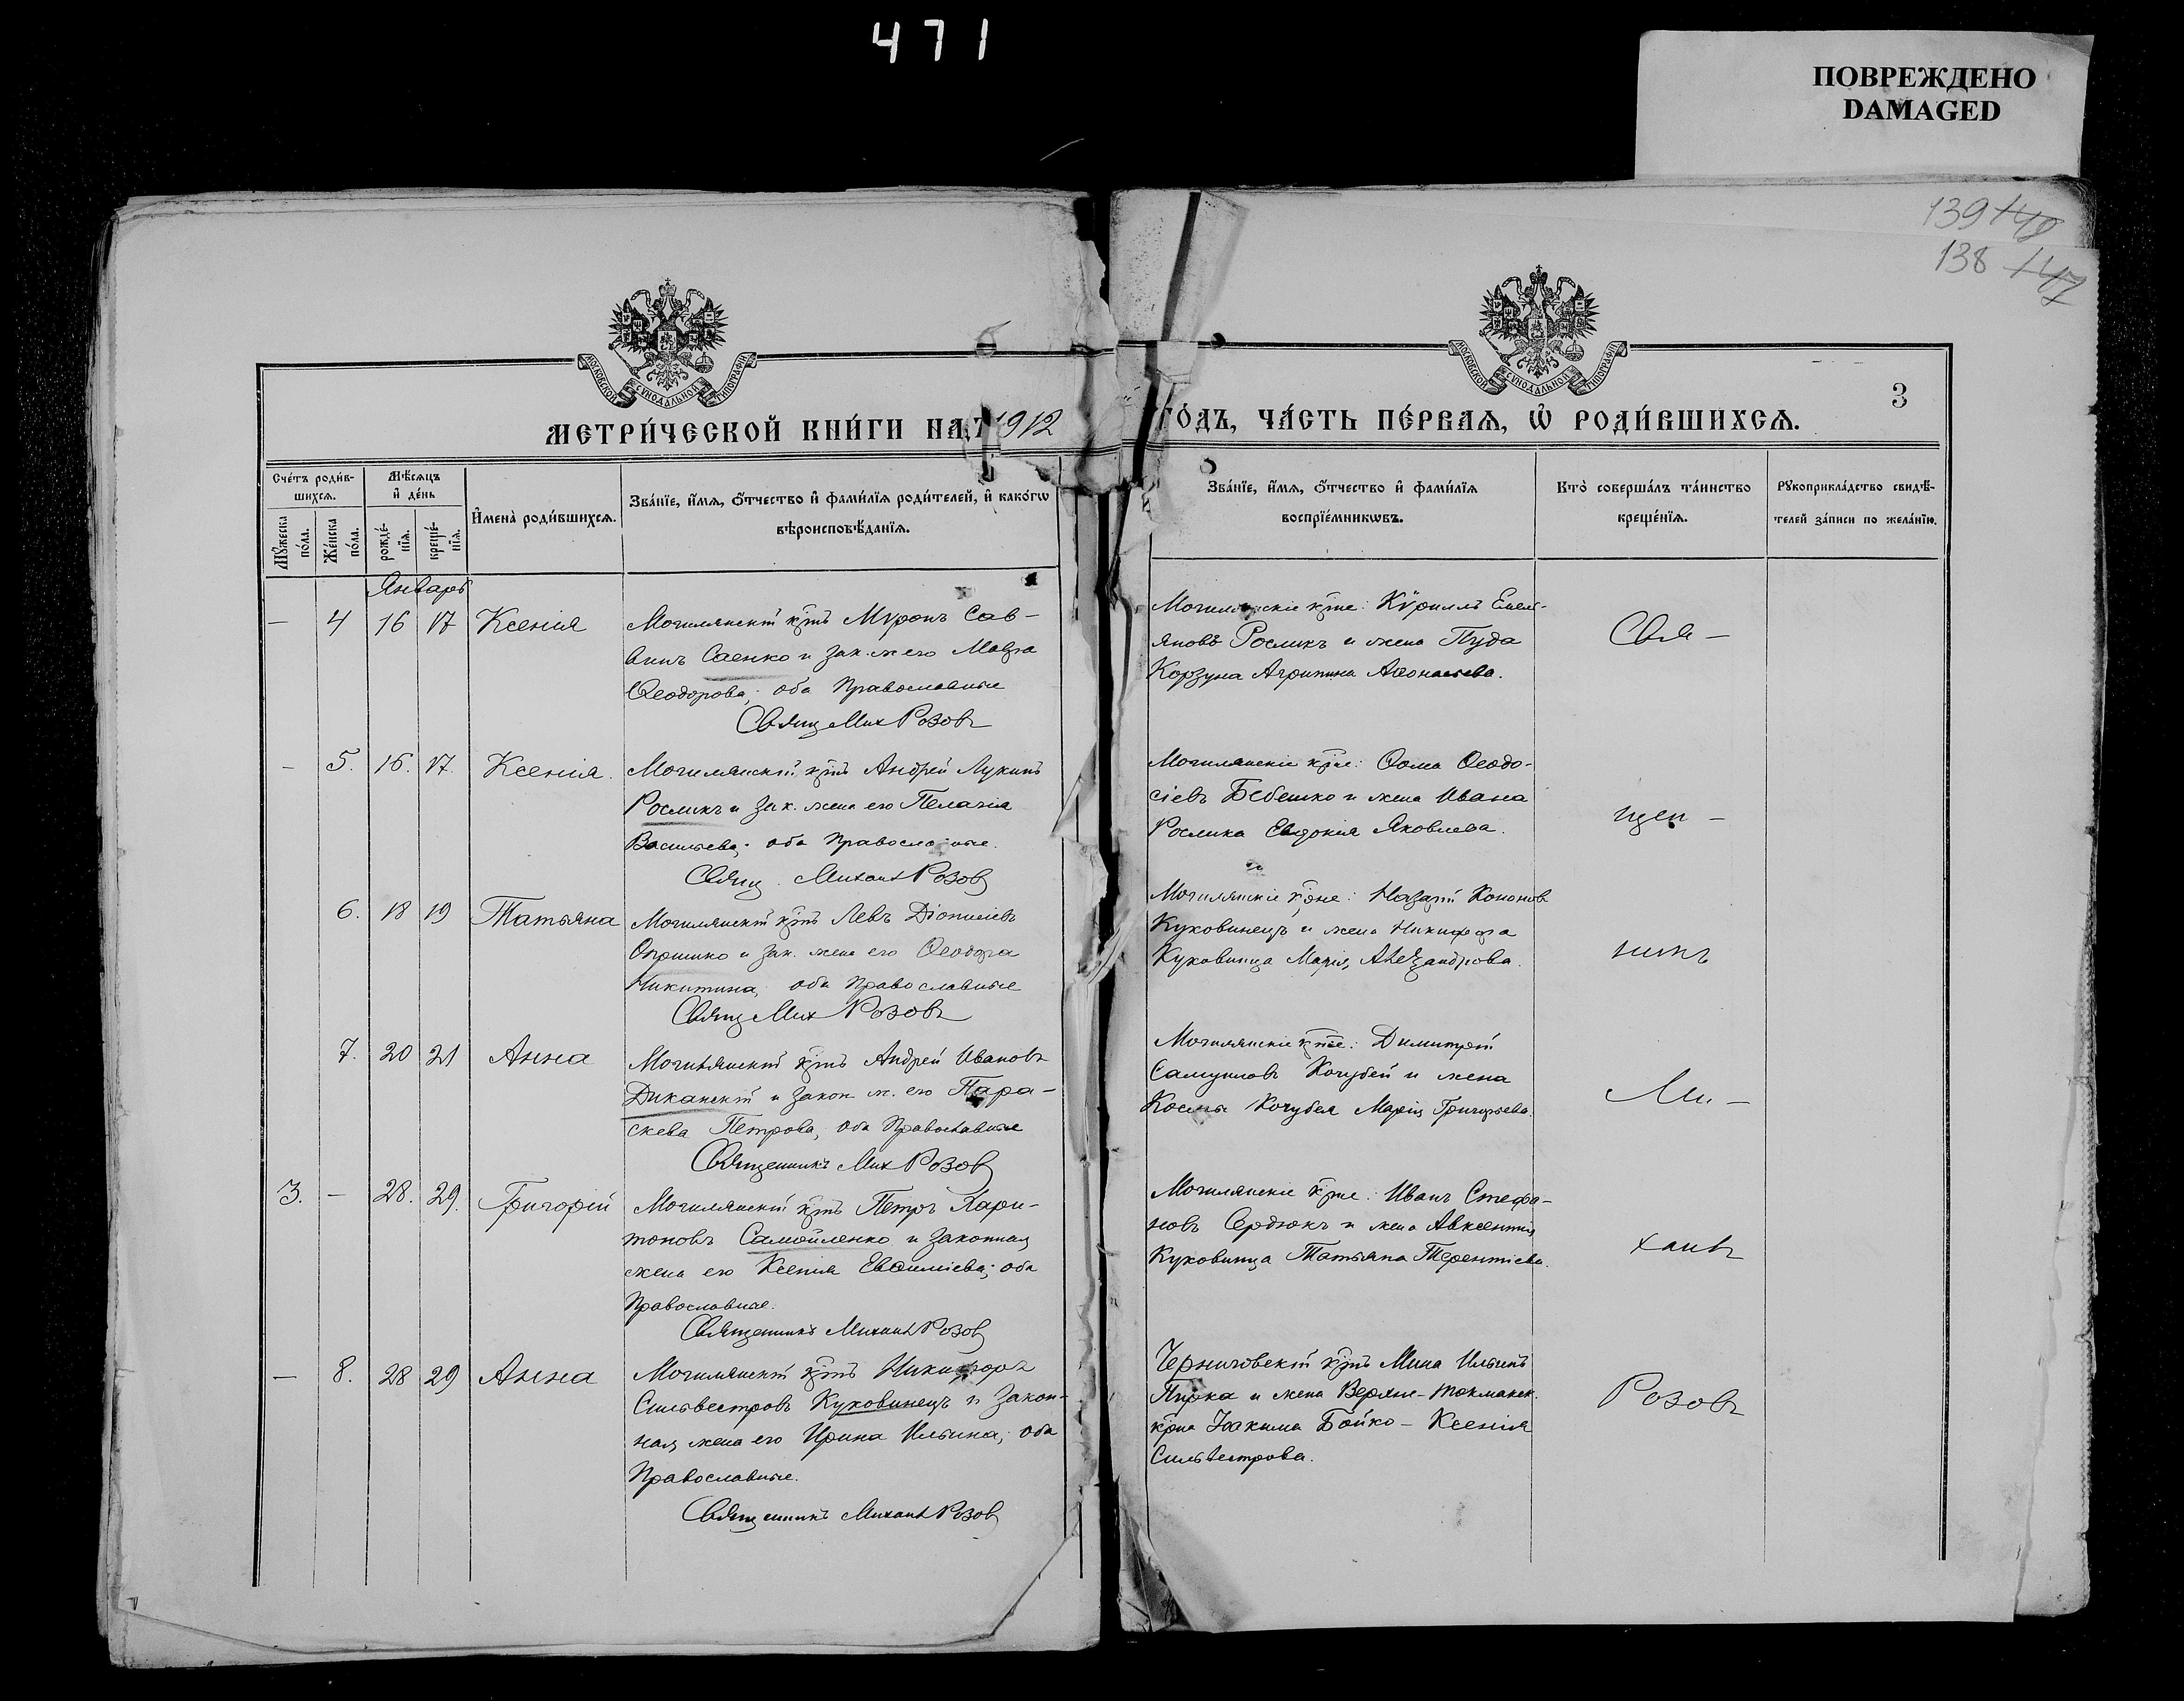 471
ПОВРЕЖДЕНО
DAMAGED
139 140
138 147
МОСКОВСКОЙ СѴНОДАЛЬНОЙ ТИПОГРАФІИ
МОСКОВСКОЙ СѴНОДАЛЬНОЙ ТИПОГРАФІИ
3
МЕТРИ́ЧЕСКОЙ КНИ́ГИ НА 1912
ГО́ДЪ, ЧА́СТЬ ПЕ́РВАѦ, Ѡ҆ РОДИ́ВШИХСѦ.
Сче́тъ роди́в-
шихсѧ.
Мꙋ́жеска
по́ла.
Же́нска
по́ла.
Мѣ́сѧцъ
и҆ де́нь
рожде́-
нїѧ.
креще́-
нїѧ.
И҆мена̀ роди́вшихсѧ.
Зва́нїе, и҆́мѧ, ѻ҆́тчество и҆ фами́лїѧ роди́телей, и҆ како́гѡ
вѣроисповѣ́данїѧ.
Зва́нїе, и҆́мѧ, ѻ҆́тчество и҆ фами́лїѧ
воспрїе́мникѡвъ.
Кто̀ соверша́лъ та́инство
креще́нїѧ.
Рꙋкоприкла́дство свидѣ́-
телей за́писи по жела́нїю.
Январь
— 4 16 17 Ксенія
Могилянскій кр̃нъ Мѵронъ Сав-
винъ Саенко и зак. ж его Мавра
Ѳеодорова; оба Православные
Свящ Мих Розовъ
Могилянскіе кр̃не: Кѵриллъ Емель-
яновъ Рослик и жена Пуда
Корзуна Агрипина Аѳонасьева.
Свя —
— 5. 16. 17. Ксенія.
Могилянскій кр̃нъ Андрей Лукинъ
Росликъ и зак. жена его Пелагія
Васильева; оба Православные.
Свящ. Михаил Розовъ
Могилянскіе кр̃не: Ѳома Ѳеодо-
сіевъ Бебешко и жена Ивана
Рослика Евдокія Яковлева.
щен —
6. 18 19 Татьяна
Могилянскій кр̃нъ Левъ Діонисіевъ
Опришко и зак. жена его Ѳеодора
Никитина, оба Православные
Свящ Мих Розовъ
Могилянскіе кр̃не: Назарій Кононов
Куковинецъ и жена Никифора
Куковинца Марія Александрова.
никъ
7. 20 21 Анна
Могилянскій кр̃нъ Андрей Ивановъ
Диканскій и закон ж. его Пара-
скева Петрова, оба Православные
Священникъ Мих Розовъ
Могилянскіе кр̃не: Димитрій
Самуиловъ Кочубей и жена
Космы Кочубея Марія Григорьева.
Ми —
3. — 28. 29. Григорій
Могилянскій кр̃нъ Петръ Хари-
тоновъ Самойленко и законная
жена его Ксенія Евѳиміева; оба
Православные.
Священникъ Михаил Розовъ
Могилянскіе кр̃не: Иванъ Стефа-
новъ Сердюкъ и жена Авксентия
Куковинца Татьяна Терентіева.
хаилъ
— 8. 28 29 Анна
Могилянскій кр̃нъ Никифоръ
Сильвестровъ Куковинецъ и Закон-
ная жена его Ирина Ильина; оба
Православные.
Священникъ Михаил Розовъ
Черниговскій кр̃нъ Мина Ильинъ
и жена Верхне-токмакск.
кр̃на Іоакима Бойко — Ксенія
Сильвестрова.
Розовъ